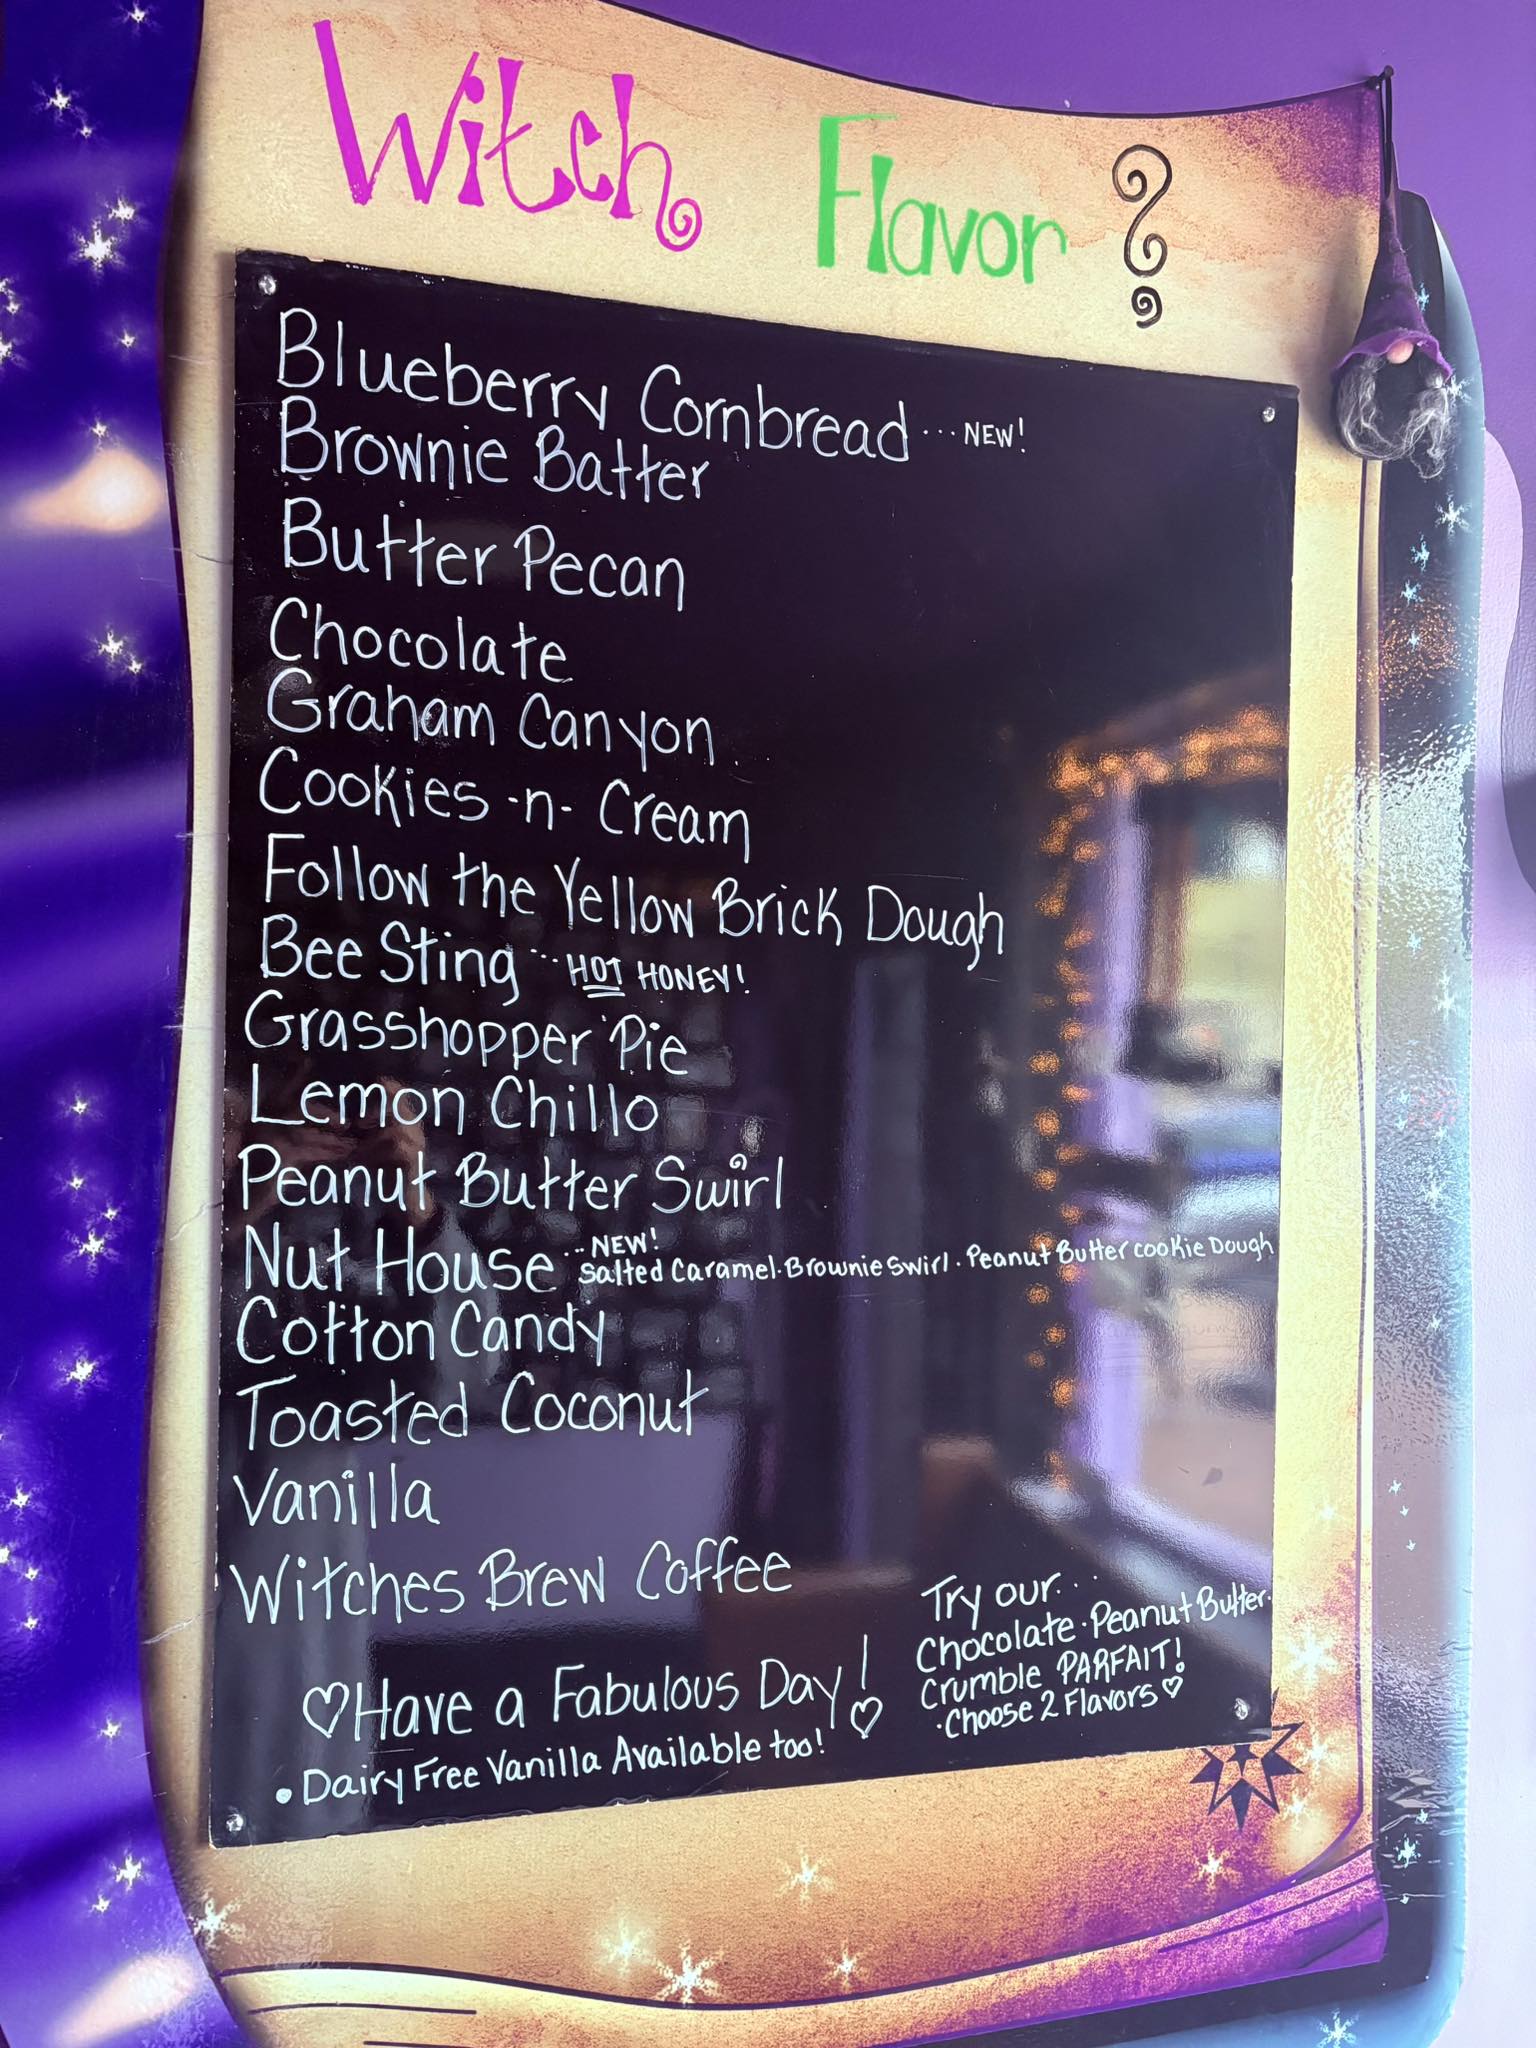 Witch Flavor?
Blueberry Cornbread ... NEW!
Brownie Batter
Butter Pecan
Chocolate
Graham Canyon
Cookies -n- Cream
Follow the Yellow Brick Dough
Bee Sting ... HOT HONEY!
Grasshopper Pie
Lemon Chillo
Peanut Butter Swirl
Nut House ... NEW!
Salted Caramel · Brownie Swirl · Peanut Butter Cookie Dough
Cotton Candy
Toasted Coconut
Vanilla
Witches Brew Coffee
♡ Have a Fabulous Day! ♡
• Dairy Free Vanilla Available too!
Try our...
Chocolate · Peanut Butter ·
Crumble PARFAIT!
· Choose 2 Flavors ♡